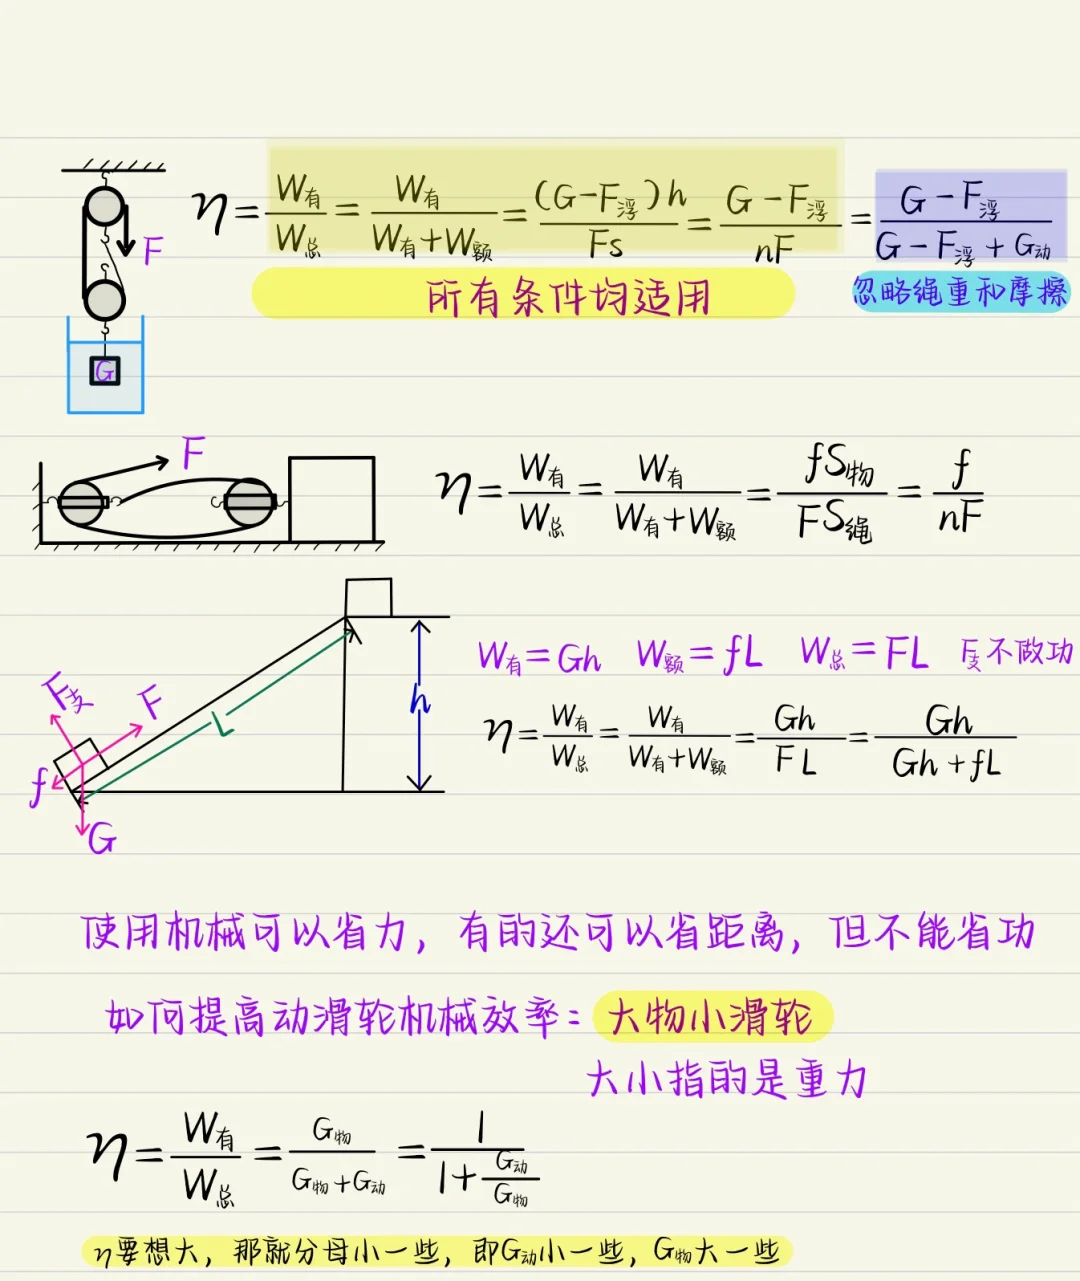 η=W有/W总=W有/(W有+W额)=(G-F浮)h/Fs=(G-F浮)/nF=(G-F浮)/(G-F浮+G动)
F
所有条件均适用
忽略绳重和摩擦
G
F
η=W有/W总=W有/(W有+W额)=fS物/FS绳=f/nF
W有=Gh W额=fL W总=FL F支不做功
F支
F
L
h
η=W有/W总=W有/(W有+W额)=Gh/FL=Gh/(Gh+fL)
f
G
使用机械可以省力，有的还可以省距离，但不能省功
如何提高动滑轮机械效率：大物小滑轮
大小指的是重力
η=W有/W总=G物/(G物+G动)=1/(1+G动/G物)
η要想大，那就分母小一些，即G动小一些，G物大一些